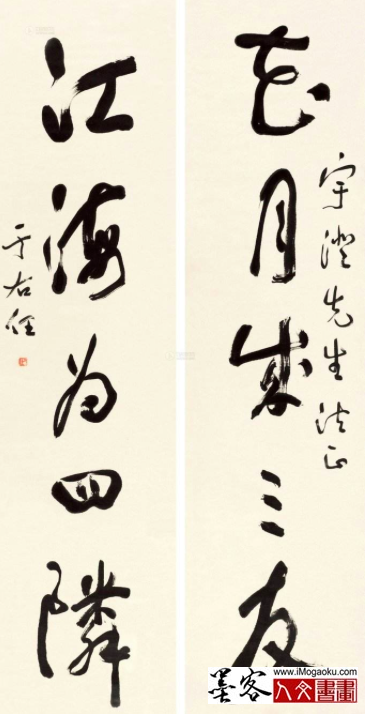 花月成三友
宇澄先生法正
江海為四隣
于右任
www.iMogaoku.com
墨客
人文書畫